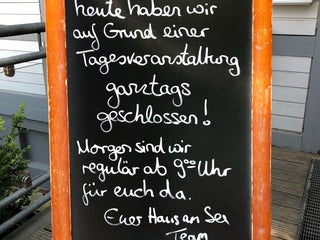 heute haben wir
auf Grund einer
Tagesveranstaltung
ganztags
geschlossen!
Morgen sind wir
regulär ab 9⁰⁰ Uhr
für euch da.
Euer Haus am See
Team